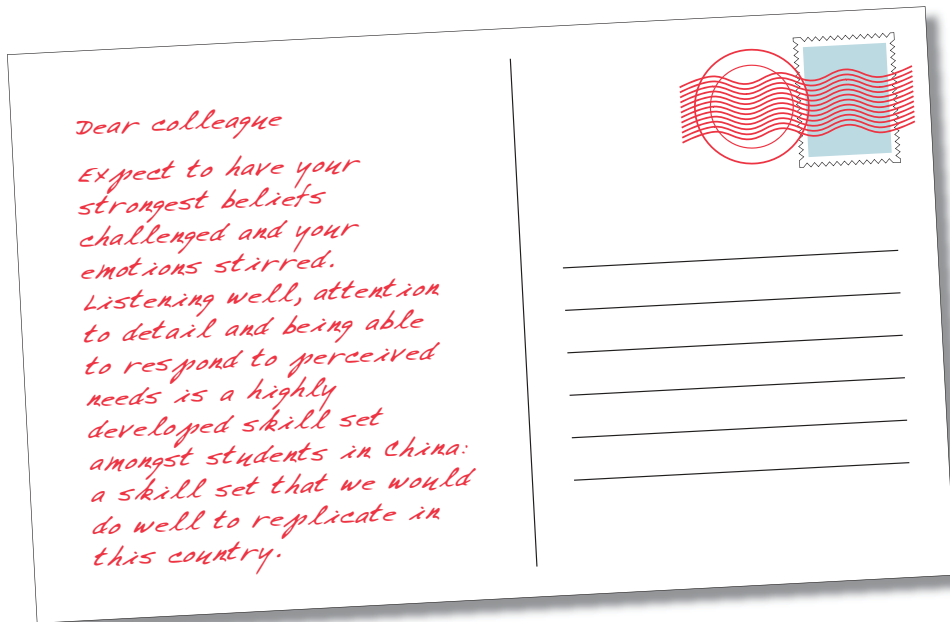 Dear colleague
Expect to have your
strongest beliefs
challenged and your
emotions stirred.
Listening well, attention
to detail and being able
to respond to perceived
needs is a highly
developed skill set
amongst students in China:
a skill set that we would
do well to replicate in
this country.